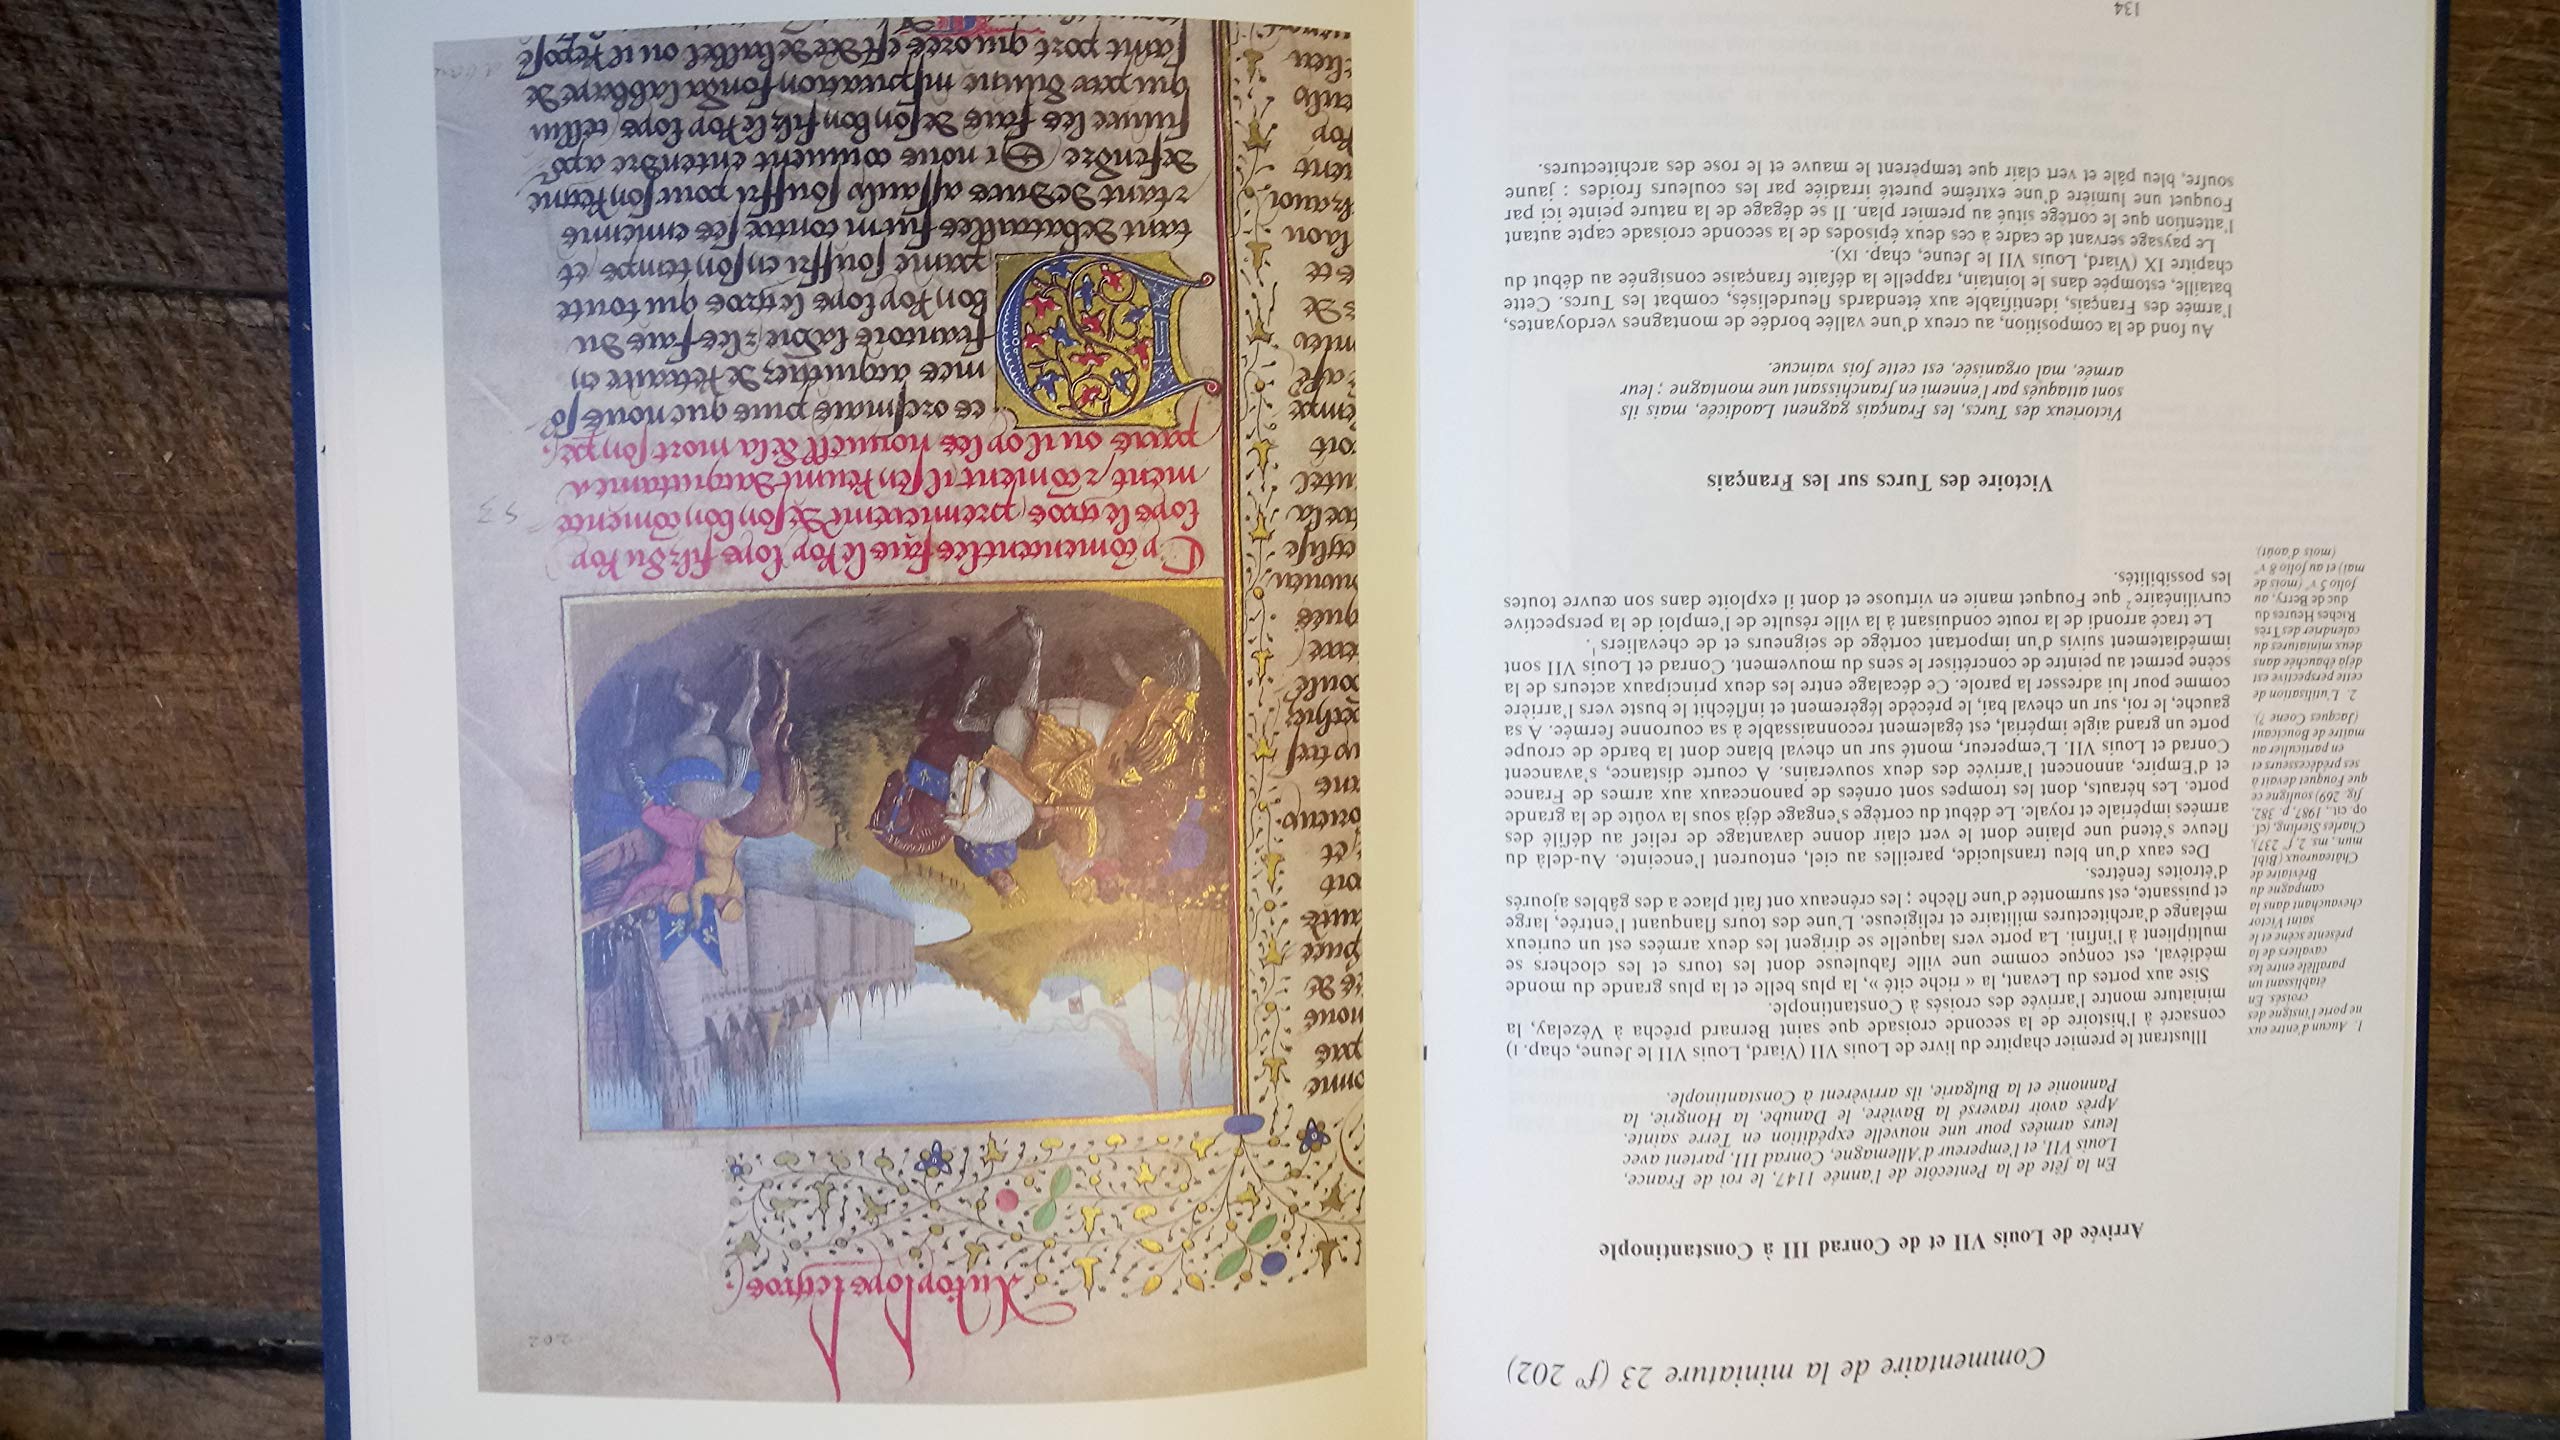 Commentaire de la miniature 23 (fº 202)
Arrivée de Louis VII et de Conrad III à Constantinople
En la fête de la Pentecôte de l'année 1147, le roi de France,
Louis VII, et l'empereur d'Allemagne, Conrad III, partent avec
leurs armées pour une nouvelle expédition en Terre sainte.
Après avoir traversé la Bavière, le Danube, la Hongrie, la
Pannonie et la Bulgarie, ils arrivèrent à Constantinople.
Illustrant le premier chapitre du livre de Louis VII (Viard, Louis VII le Jeune, chap. I)
consacré à l'histoire de la seconde croisade que saint Bernard prêcha à Vézelay, la
miniature montre l'arrivée des croisés à Constantinople.
Sise aux portes du Levant, la « riche cité », la plus belle et la plus grande du monde
médiéval, est conçue comme une ville fabuleuse dont les tours et les clochers se
multiplient à l'infini. La porte vers laquelle se dirigent les deux armées est un curieux
mélange d'architectures militaire et religieuse. L'une des tours flanquant l'entrée, large
et puissante, est surmontée d'une flèche ; les créneaux ont fait place a des gâbles ajourés
d'étroites fenêtres.
Des eaux d'un bleu translucide, pareilles au ciel, entourent l'enceinte. Au-delà du
fleuve s'étend une plaine dont le vert clair donne davantage de relief au défilé des
armées impériale et royale. Le début du cortège s'engage déjà sous la voûte de la grande
porte. Les hérauts, dont les trompes sont ornées de panonceaux aux armes de France
et d'Empire, annoncent l'arrivée des deux souverains. A courte distance, s'avancent
Conrad et Louis VII. L'empereur, monté sur un cheval blanc dont la barde de croupe
porte un grand aigle impérial, est également reconnaissable à sa couronne fermée. A sa
gauche, le roi, sur un cheval bai, le précède légèrement et infléchit le buste vers l'arrière
comme pour lui adresser la parole. Ce décalage entre les deux principaux acteurs de la
scène permet au peintre de concrétiser le sens du mouvement. Conrad et Louis VII sont
immédiatement suivis d'un important cortège de seigneurs et de chevaliers 1.
Le tracé arrondi de la route conduisant à la ville résulte de l'emploi de la perspective
curvilinéaire 2 que Fouquet manie en virtuose et dont il exploite dans son œuvre toutes
les possibilités.
Victoire des Turcs sur les Français
Victorieux des Turcs, les Français gagnent Laodicée, mais ils
sont attaqués par l'ennemi en franchissant une montagne ; leur
armée, mal organisée, est cette fois vaincue.
Au fond de la composition, au creux d'une vallée bordée de montagnes verdoyantes,
l'armée des Français, identifiable aux étendards fleurdelisés, combat les Turcs. Cette
bataille, estompée dans le lointain, rappelle la défaite française consignée au début du
chapitre IX (Viard, Louis VII le Jeune, chap. IX).
Le paysage servant de cadre à ces deux épisodes de la seconde croisade capte autant
l'attention que le cortège situé au premier plan. Il se dégage de la nature peinte ici par
Fouquet une lumière d'une extrême pureté irradiée par les couleurs froides : jaune
soufre, bleu pâle et vert clair que tempèrent le mauve et le rose des architectures.
134
1. Aucun d'entre eux
ne porte l'insigne des
croisés. En
établissant un
parallèle entre les
cavaliers de la
présente scène et le
saint Victor
chevauchant dans la
campagne du
Bréviaire de
Châteauroux (Bibl.
mun., ms. 2, fº 237),
Charles Sterling, (cf.
op. cit., 1987, p. 382,
fig. 269) souligne ce
que Fouquet devait à
ses prédécesseurs et
en particulier au
maître de Boucicaut
(Jacques Coene ?).
2. L'utilisation de
cette perspective est
déjà ébauchée dans
deux miniatures du
calendrier des Très
Riches Heures du
duc de Berry, au
folio 5 vº (mois de
mai) et au folio 8 vº
(mois d'août).
202
roy loys le gros.
Cy comencent les fais le roy loys filz du roy
loys le gros premierement de son bon comence
ment et coment il sen revint
paris ou il oy les nouvell de la mort son pe
53
ce oresmais puis que nous so
mes acquittez de retraire en
francois la vie et les fais du
bon roy loys le gros qui toute
paine souffri en son temps et
tant de batailles contre ses ennemis
et tant de durs assaus souffri pour son regne
defendre Si nous convient entendre
suivre les fais de son bon filz le roy loys cellui
qui par divine inspiration fonda labbaye de
saint port qui ores est ou il repose